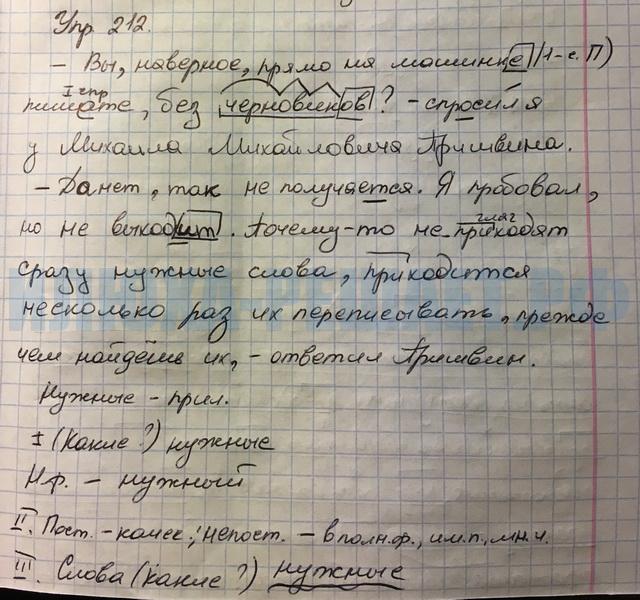 Упр 212.
– Вы, наверное, прямо на машинке (1-е. П)
I спр
пишете, без черновиков? – спросил я
у Михаила Михайловича Пришвина.
– Да нет, так не получается. Я пробовал,
но не выходит. Почему-то не приходят
глаг
сразу нужные слова, приходится
несколько раз их переписывать, прежде
чем найдёшь их, – ответил Пришвин.
Нужные – прил.
I (Какие?) нужные
Н.ф. – нужный
II. Пост. – качес.; Непост. – в полн.ф., им.п., мн.ч.
III. Слова (какие?) нужные